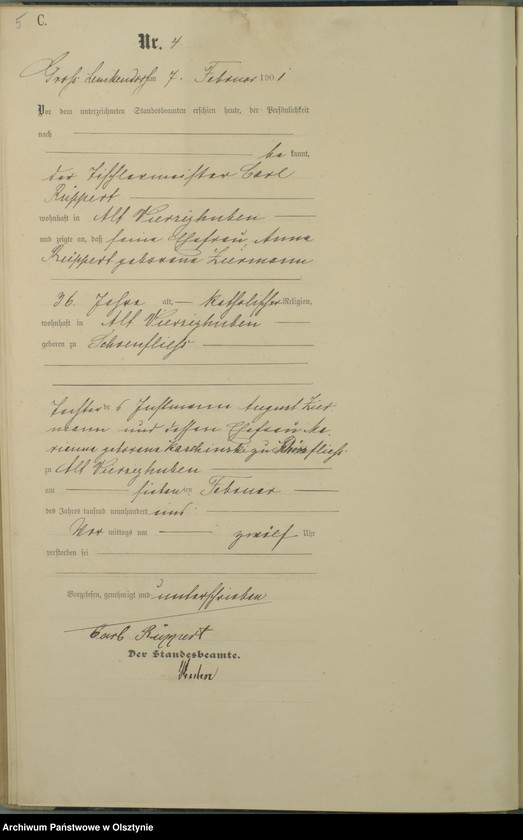 5 C.
Nr. 4
Groß am 7. Februar 1901
Vor dem unterzeichneten Standesbeamten erschien heute, der Persönlichkeit
nach
be kannt,
der Tischlermeister Carl
Rüppert
wohnhaft in Alt Vierzighuben
und zeigte an, daß seine Ehefrau Anna
Rüppert geborene Ziermann
36 Jahre alt, katholischer Religion,
wohnhaft in Alt Vierzighuben
geboren zu Schoenfließ
Tochter des Instmann August Zier
mann und dessen Ehefrau Ma
rianna geborene zu
zu Alt Vierzighuben
am sieben ten Februar
des Jahres tausend neunhundert und
Vor mittags um zwölf Uhr
verstorben sei
Vorgelesen, genehmigt und unterschrieben
Carl Rüppert
Der Standesbeamte.
Archiwum Państwowe w Olsztynie